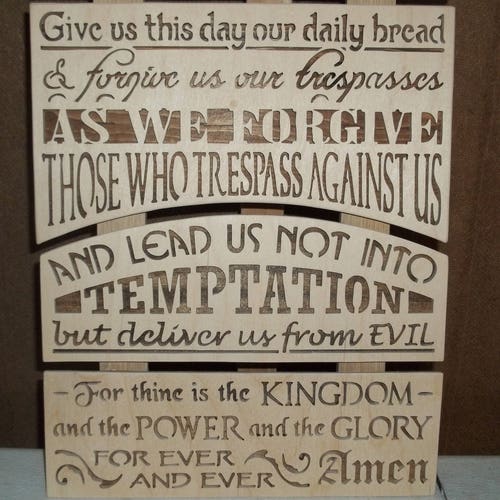 Give us this day our daily bread
& forgive us our trespasses
AS WE FORGIVE
THOSE WHO TRESPASS AGAINST US
AND LEAD US NOT INTO
TEMPTATION
but deliver us from EVIL
- For thine is the KINGDOM -
and the POWER and the GLORY
FOR EVER
AND EVER Amen